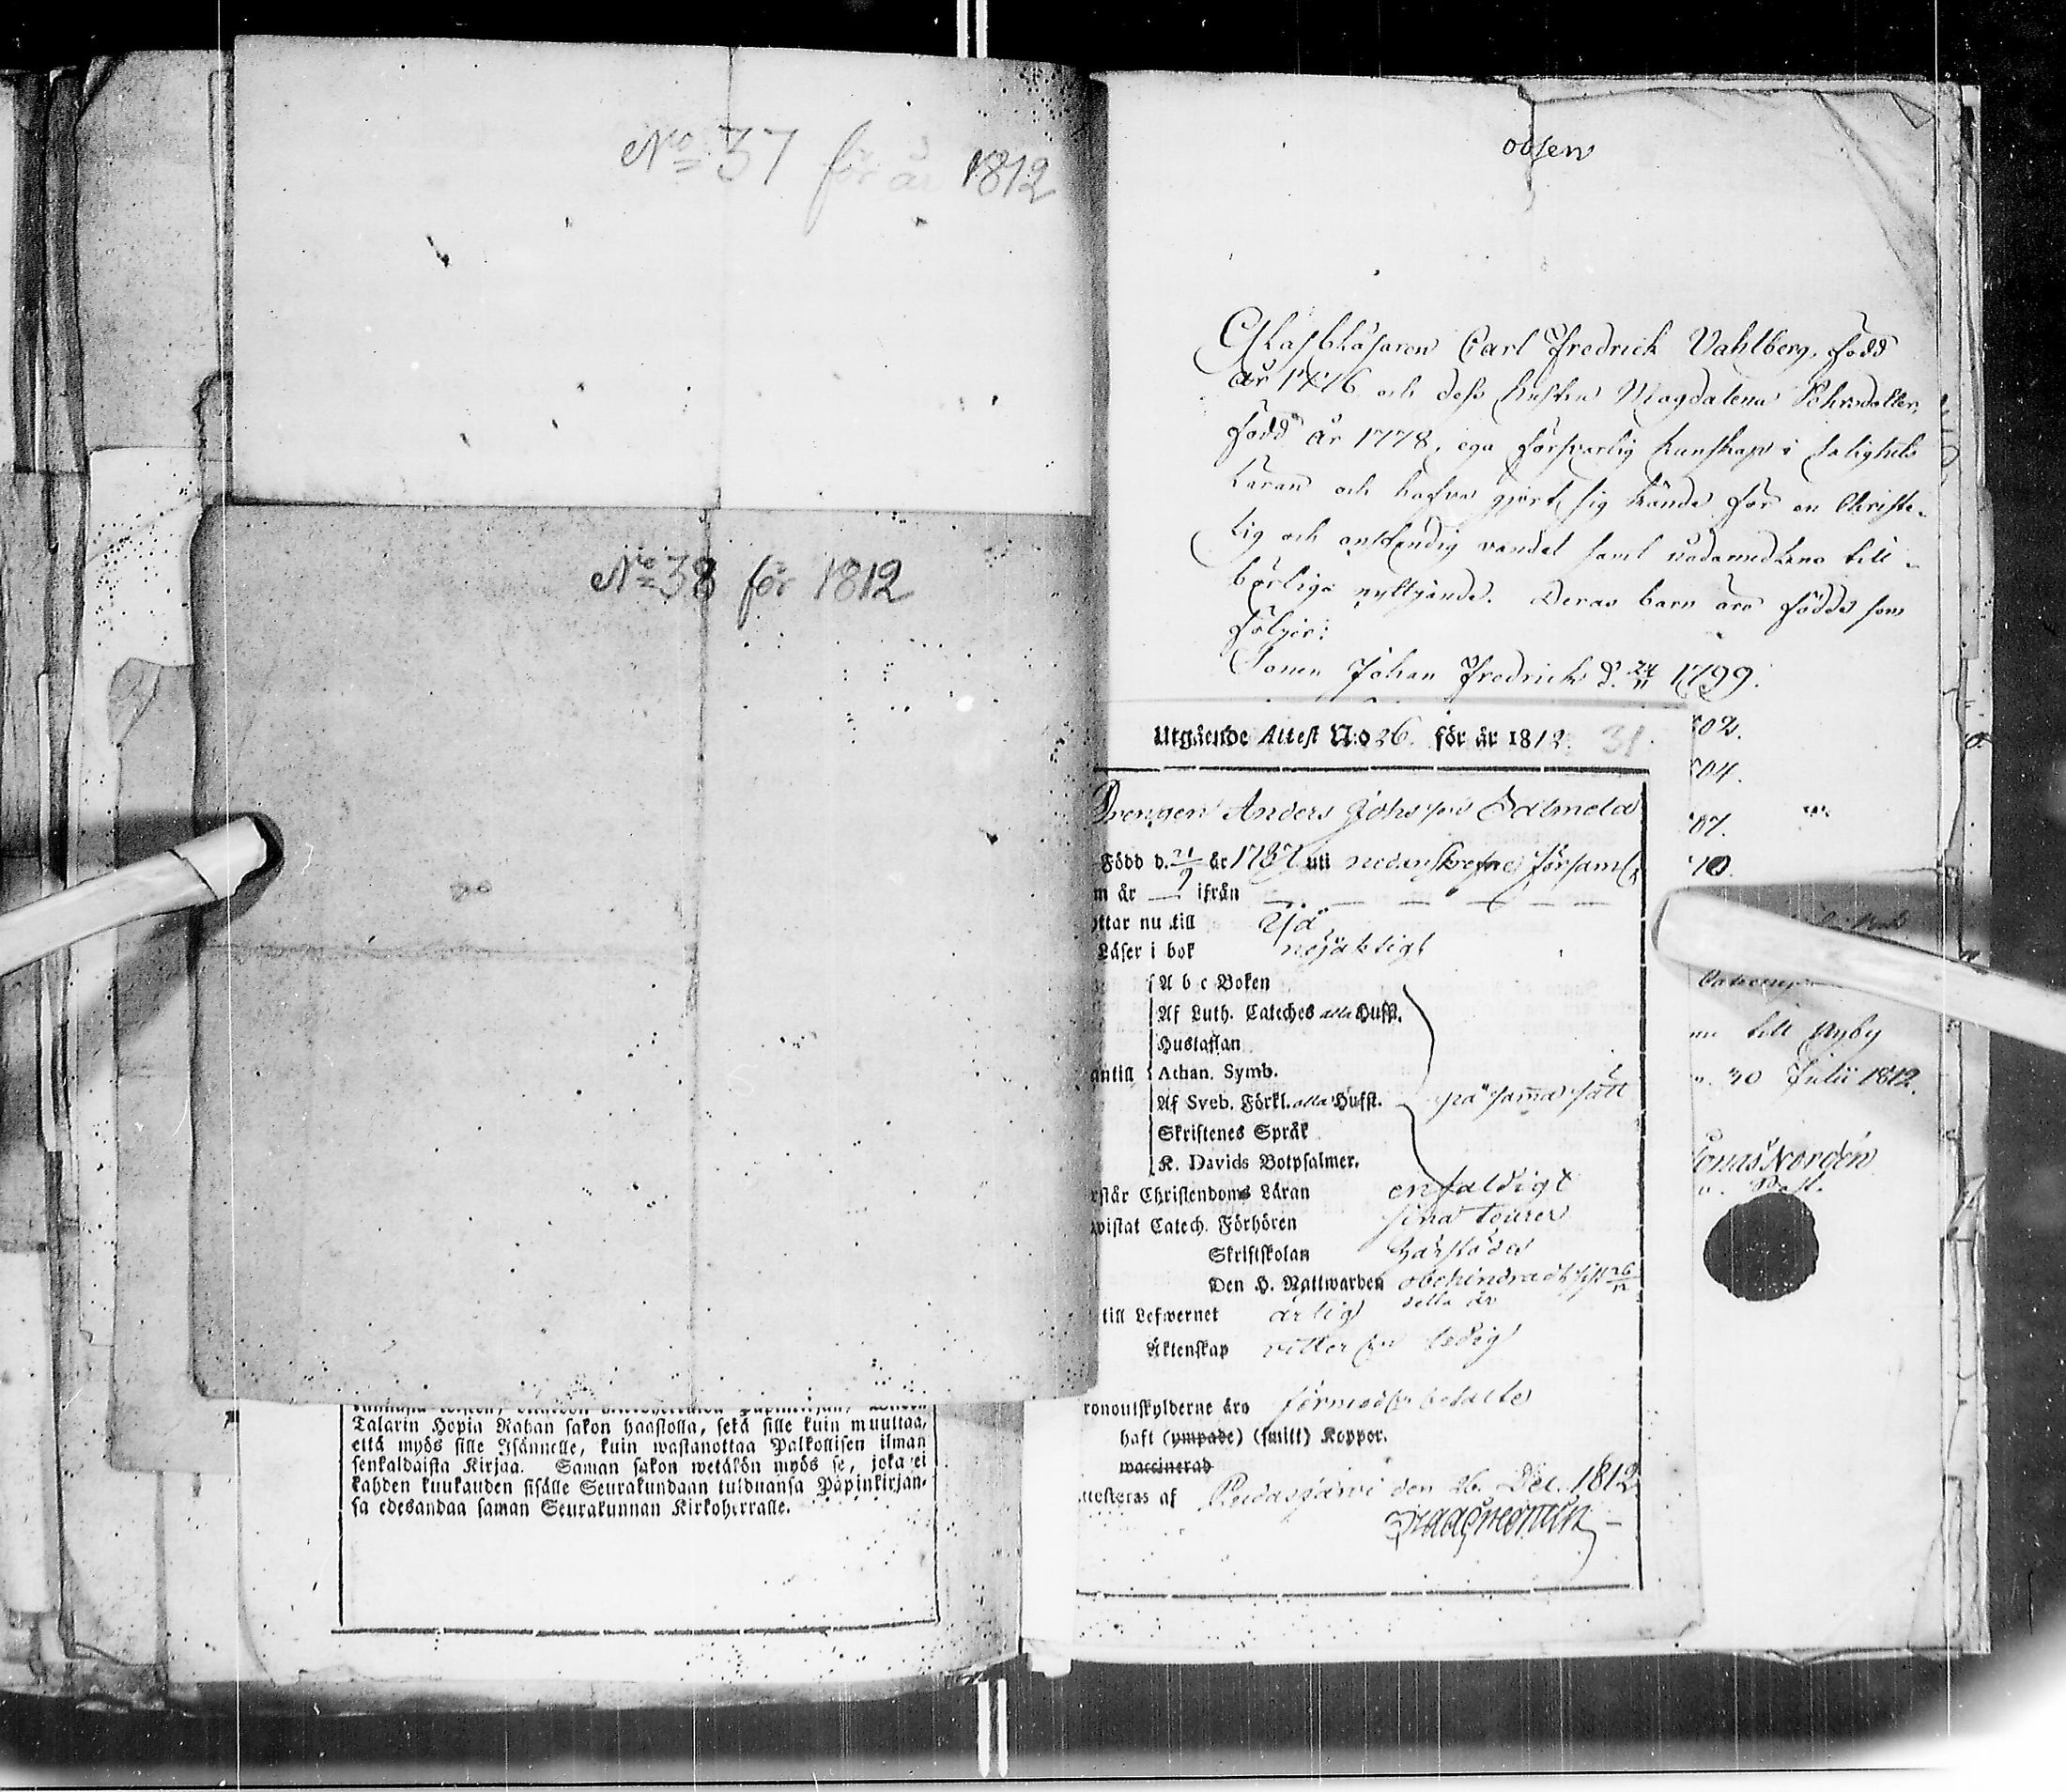 No 37 för år 1812
No 38 för 1812
Talarin Hopia Rahan sakon haastolla, sekä sille kuin muuttaa,
että myös sille Isännelle, kuin wastanottaa Palkollisen ilman
senkaldaista Kirjaa. Saman sakon wetäkön myös se, joka ei
kahden kuukauden sisälle Seurakundaan tulduansa Papinkirjan-
sa edesandaa saman Seurakunnan Kirkoherralle.
Glasblåsaren Carl Fredrich Vahlberg, född
år 1776 och dess hustru Magdalena
född år 1778, ega försvarlig kunskap i salighets
läran och hafva gjort sig kände för en Christe-
lig och anständig vandel samt nådemedlens till-
börliga nyttjande. Deras barn äro födde som
följer:
Sonen Johan Fredrich d. 24/11 1799.
02.
04.
07.
10.
till Nyby
30 Julii 1812
Jonas Nordén
v. Past.
Utgående Attest N:o 26. för år 1812. 31.
Drengen Anders Johsson
Född d. 21/9 år 1787 uti nedanskrefne församl
m år — ifrån — — — — —
ttar nu till Ijå
Läser i bok nöjaktigt
A b c Boken
Af Luth. Cateches alla Hufst.
Hustaflan
antill Athan. Symb.
Af Sveb. Förkl. alla Hufst. på samma sätt
Skriftenes Språk
K. Davids Botpsalmer.
rstår Christendoms Läran enfaldigt
wistat Catech. Förhören sina tourer
Skriftskolan härstädes
Den H. Nattwarden obehindradt sist 26/12
detta år
till Lefwernet ärlig
Äktenskap ledig
ronoutskylderne äro betalte
haft (ympade) (smitt) Koppor.
waccinerad
ttesteras af Pudasjärvi den 26. Dec. 1812